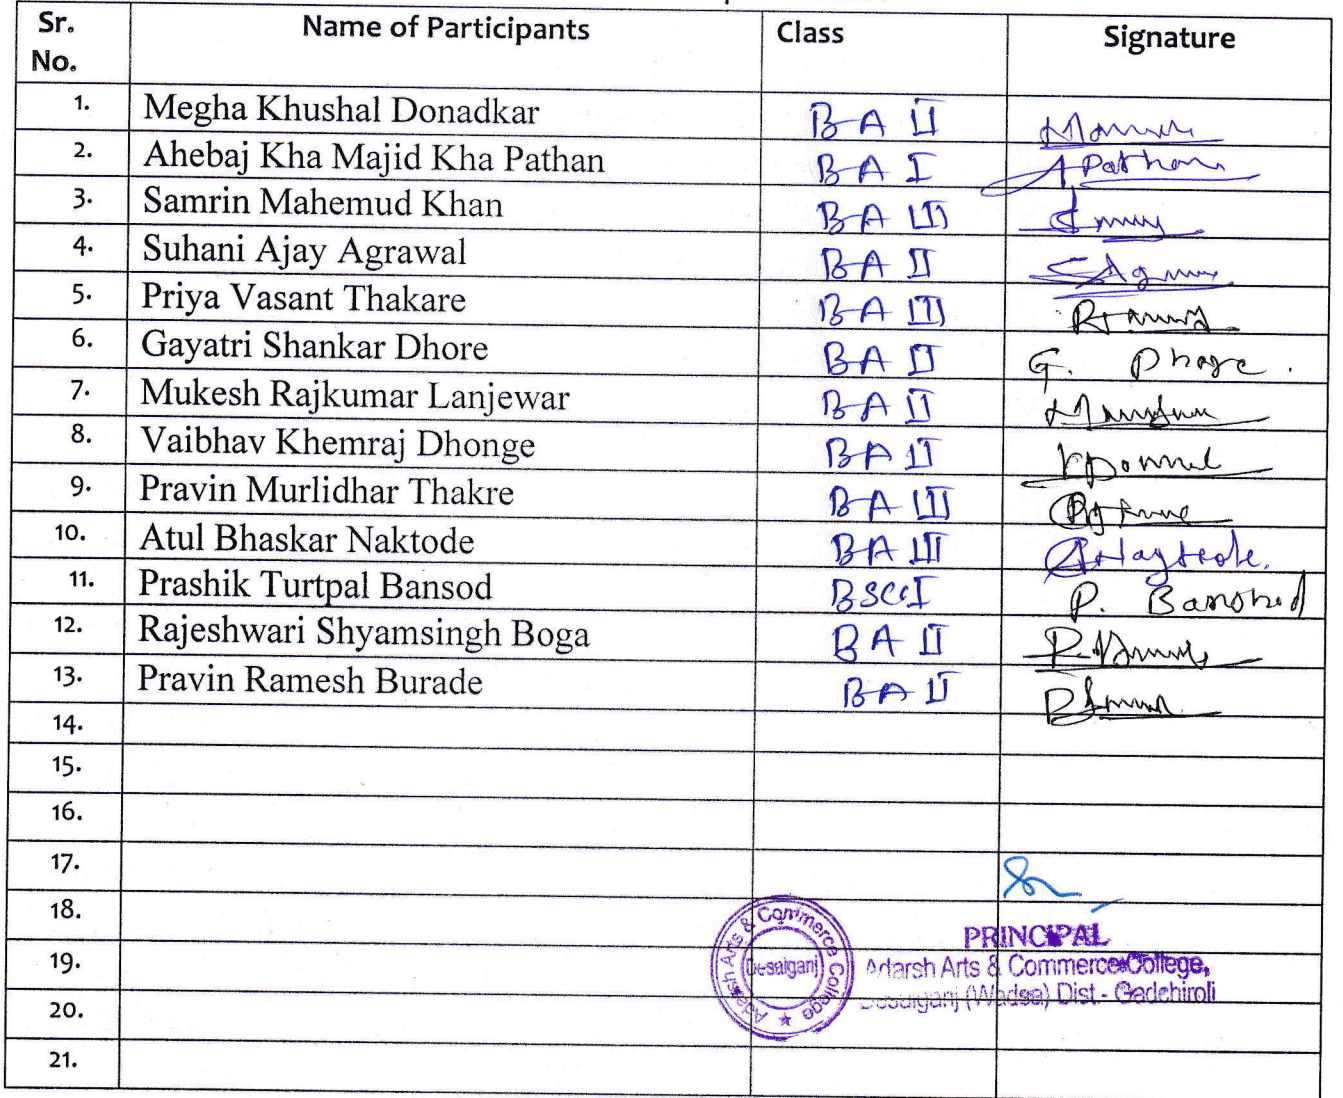 Sr. No. Name of Participants Class Signature
1. Megha Khushal Donadkar B A II
2. Ahebaj Kha Majid Kha Pathan B A I A Pathan
3. Samrin Mahemud Khan B A III
4. Suhani Ajay Agrawal B A II
5. Priya Vasant Thakare B A III
6. Gayatri Shankar Dhore B A II G. Dhore.
7. Mukesh Rajkumar Lanjewar B A II
8. Vaibhav Khemraj Dhonge B A II
9. Pravin Murlidhar Thakre B A III
10. Atul Bhaskar Naktode B A III
11. Prashik Turtpal Bansod P. Banshod
12. Rajeshwari Shyamsingh Boga B A II
13. Pravin Ramesh Burade B A II
14.
15.
16.
17.
18.
19.
20.
21.
Adarsh Arts & Commerce College
Desaiganj
PRINCIPAL
Adarsh Arts & Commerce College,
Desaiganj (Wadsa) Dist.- Gadchiroli